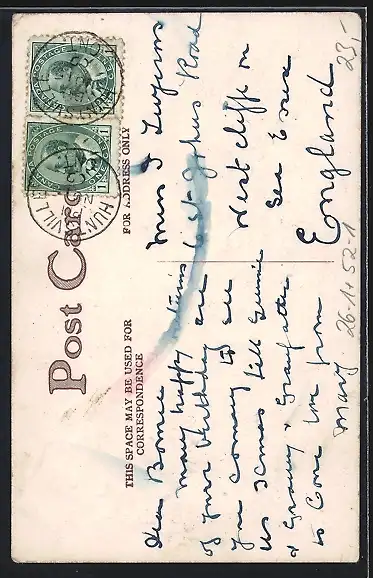 Post Card
THIS SPACE MAY BE USED FOR
CORRESPONDENCE
FOR ADDRESS ONLY
HUNTSVILLE
Dear Bonnie
Many happy returns
of your birthday are
you coming to see
us Xmas tell Eunie
& Granny & Grandfather
to come love from
Mary
Miss I
Road
Westcliffe on
Sea Essex
England
23,-
26·1·52-1